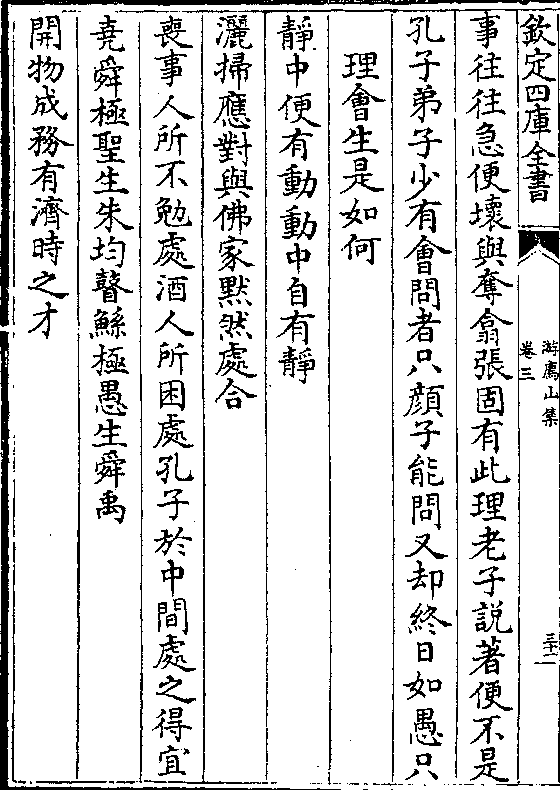 欽定四庫全書
游廌山集
卷三
三十二
事往往急便壞與奪翕張固有此理老子說著便不是
孔子弟子少有會問者只顔子能問又却終日如愚只
理會生是如何
靜中便有動動中自有靜
灑掃應對與佛家黙然處合
喪事人所不勉處酒人所困處孔子於中間處之得宜
堯舜極聖生朱均瞽鯀極愚生舜禹
開物成務有濟時之才